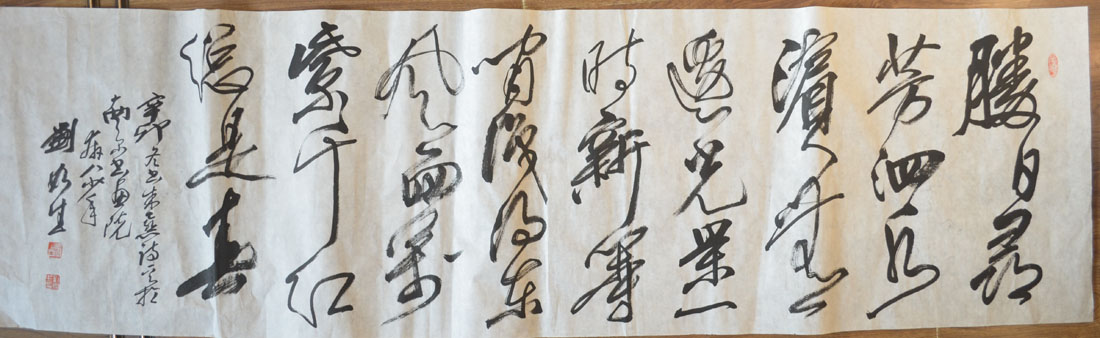 勝日尋
芳泗水
濱無
邊光景一
時新等
閒識得東
風面萬
紫千紅
總是春
辛卯冬书朱熹詩於
南京书画院
劉生